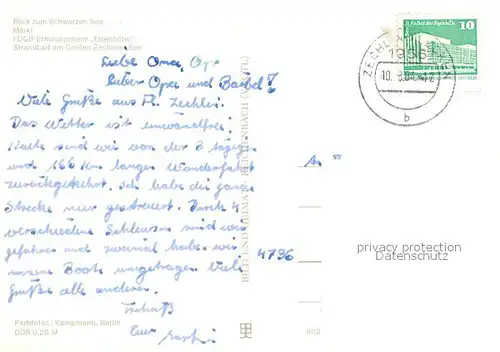 Blick zum Schwarzen See
Markt
FDGB-Erholungsheim „Elsenhöhe"
Strandbad am Großen Zechliner See
Liebe Oma, Opa
lieber Opa und Bärbel!
Viele Grüße aus Fl. Zechlin.
Das Wetter ist einwandfrei.
sind wir von der 8 tägigen
und 166 km langen Wanderfahrt
zurückgekehrt. Ich habe die ganze
Strecke nur gesteuert. Durch 4
verschiedene Schleusen sind wir
gefahren und zweimal haben wir
unsere Boote umgetragen. Viele
Grüße alle anderen.
Tschüß
Euer
Farbfotos: Kampmann, Berlin
DDR 0,20 M
BILD UND HEIMAT REICHENBACH (VOGTL)
An
4736
III/2
ZECHLIN
1955
10.8.84
b
Palast der Republik
10
privacy protection
Datenschutz